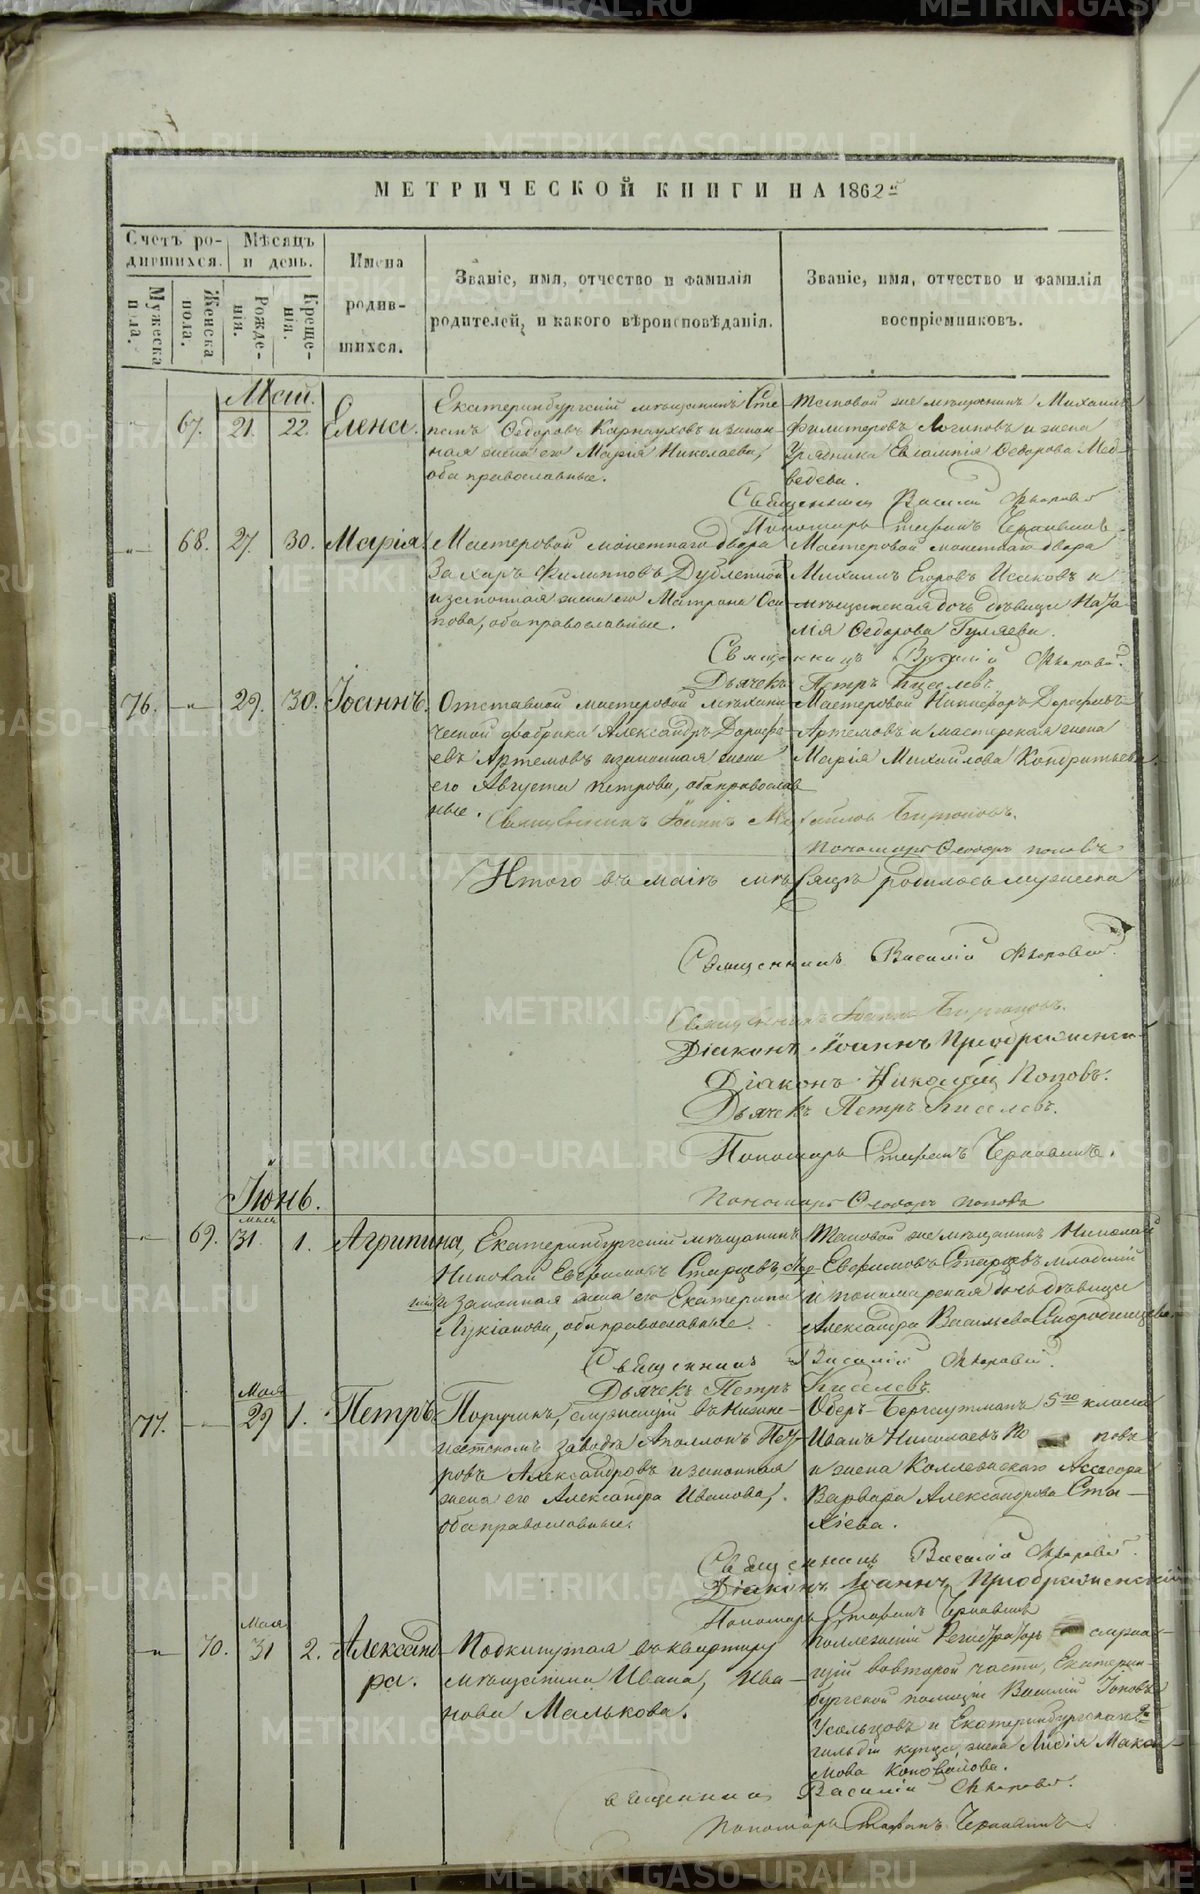 МЕТРИЧЕСКОЙ КНИГИ НА 1862 й
Счетъ ро-
дившихся.
Мужеска
пола.
Женска
пола.
Мѣсяцъ
и день.
Рожде-
нія.
Креще-
нія.
Имена
родив-
шихся.
Званіе, имя, отчество и фамилія
родителей, и какого вѣроисповѣданія.
Званіе, имя, отчество и фамилія
воспріемниковъ.
Май.
67. 21. 22. Елена.
Екатеринбургскій мѣщанинъ Сте-
панъ Ѳедоровъ Карнауховъ и закон-
ная жена его Марія Николаева,
оба православные.
Таковой же мѣщанинъ Михаилъ
Филитеровъ Логиновъ и жена
Урядника Евлампія Ѳедорова Мед-
ведева.
Священникъ Василій
Пономарь Стефанъ
68. 27. 30. Марія.
Мастеровой монетнаго двора
Захаръ Филипповъ
и законная жена его Матрона Оси-
пова, оба православные.
Мастеровой монетнаго двора
Михаилъ Егоровъ Исаковъ и
мѣщанская дочь дѣвица Ната-
лія Ѳедорова Гуляева.
Священникъ Василій
Дьячекъ Петръ Киселевъ.
76. 29. 30. Іоаннъ.
Отставной мастеровой механи-
ческой фабрики Александръ Дорофе-
евъ Артемовъ и законная жена
его Августа Петрова, оба православ
ные.
Мастеровой Никифоръ Дорофеевъ
Артемовъ и мастерская жена
Марія Михайлова Кондратьева.
Священникъ Іоаннъ Михайловъ Бирюковъ.
Пономарь Ѳеодоръ Поповъ
Итого въ маѣ мѣсяцѣ родилось мужеска
Священникъ Василій
Священникъ Іоаннъ Бирюковъ.
Діаконъ Іоаннъ Преображенскій
Діаконъ Николай Поповъ.
Дьячекъ Петръ Киселевъ.
Пономарь Стефанъ
Пономарь Ѳеодоръ Поповъ
Іюнь.
мая
69. 31. 1. Агрипина,
Екатеринбургскій мѣщанинъ
Николай Евфимовъ Старцевъ,
и законная жена его Екатерина
Лукіанова, оба православные.
Таковой же мѣщанинъ Николай
Евфимовъ Старцевъ младшій
и пономарская дочь дѣвица
Александра Васильева
Священникъ Василій
Дьячекъ Петръ Киселевъ.
Мая
77. 29 1. Петръ.
Поручикъ, служащій въ Нижне-
исетскомъ заводѣ Аполлонъ Пет-
ровъ Александровъ и законная
жена его Александра Иванова,
оба православные.
Оберъ-Бергмейстеръ 5го класса
Иванъ Николаевъ
и жена Коллежскаго Асессора
Варвара Александрова
Священникъ Василій
Діаконъ Іоаннъ Преображенскій
Пономарь Стефанъ
Мая
70. 31 2. Александ-
ра.
Подкинутая въ квартиру
мѣщанина Ивана, Ива-
нова Малькова.
Коллежскій Регистраторъ служа-
щій во второй части, Екатерин-
бургской полиціи Василій
Усольцовъ и Екатеринбургскаго 2й
гильдіи купца, жена Лидія Макси-
мова Коновалова.
Священникъ Василій
Пономарь Стефанъ